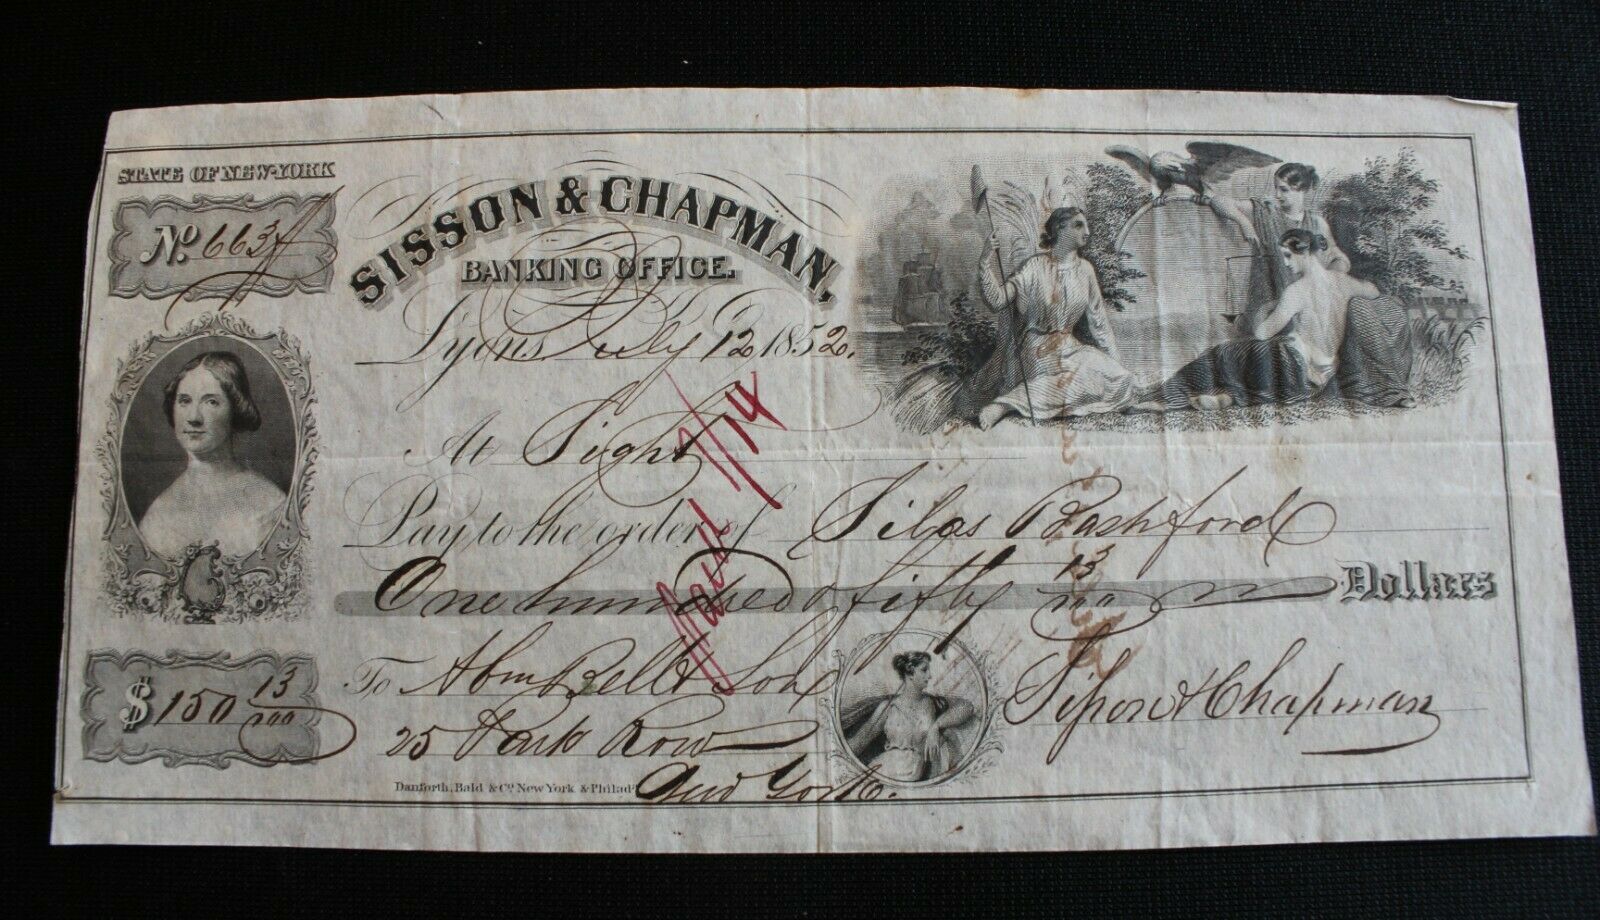 STATE OF NEW-YORK
No. 663
SISSON & CHAPMAN,
BANKING OFFICE.
Lyons July 12 1852.
At Sight
Pay to the order of Silas Bashford
One hundred & fifty 13/100 Dollars
$150 13/100
To Abm Bell & Son
25 Park Row
New York.
Sisson & Chapman
Danforth, Bald & Co. New York & Philada.
7/14